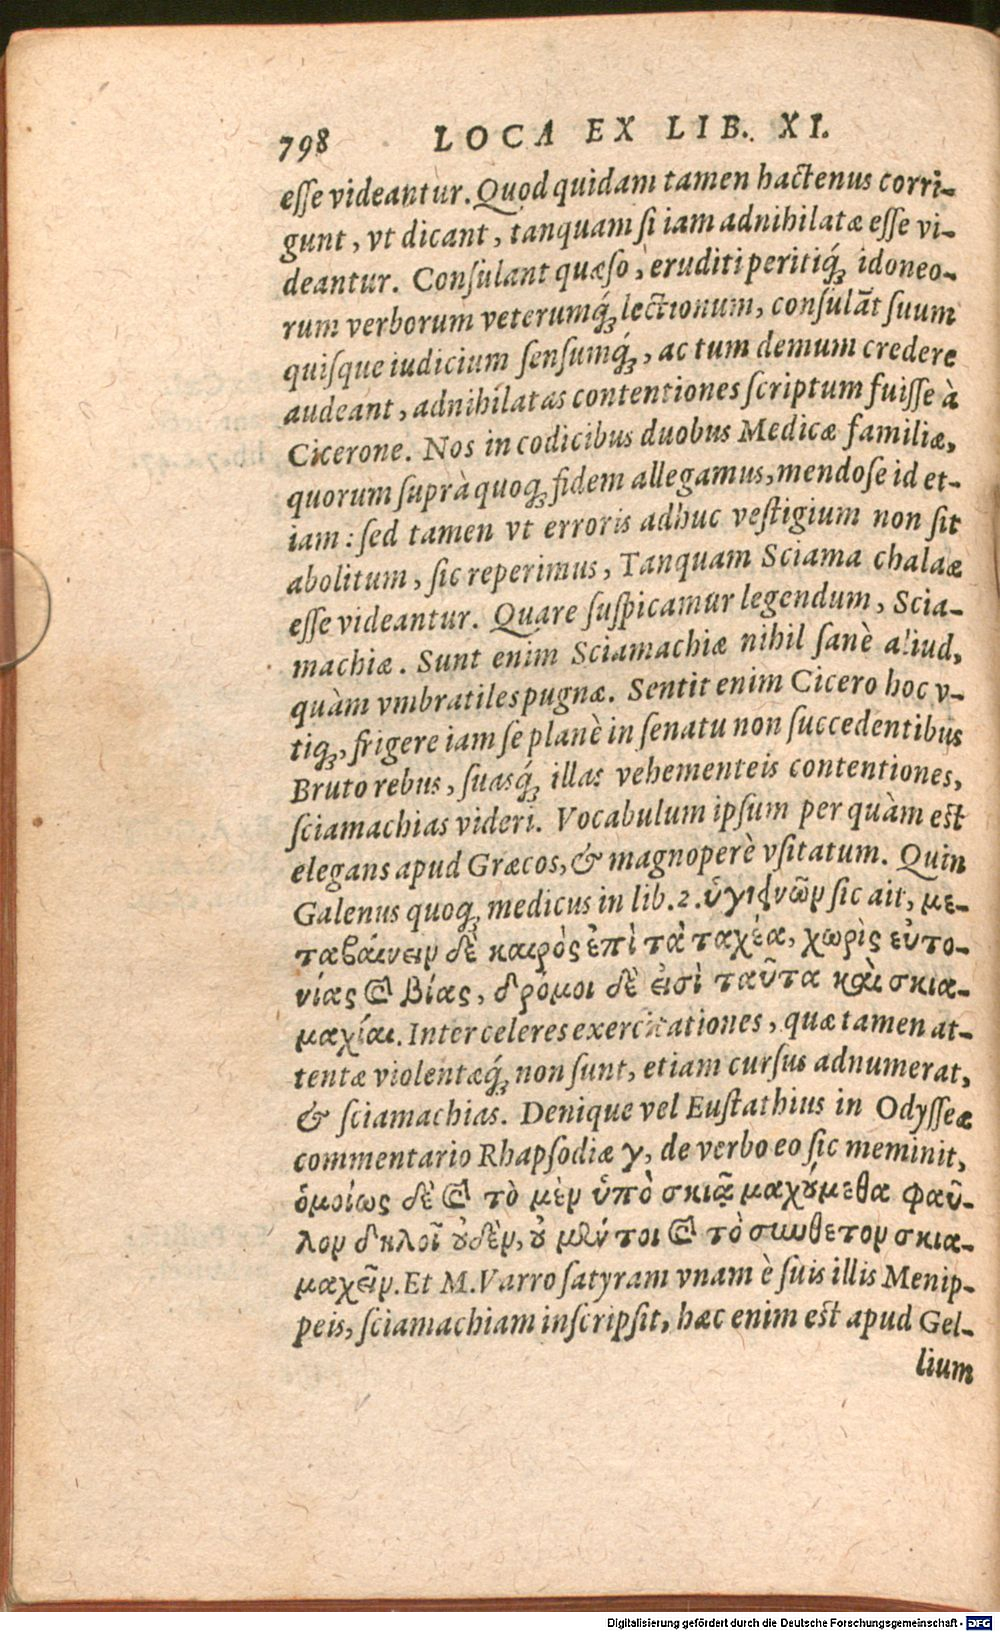 798 LOCA EX LIB. XI.
esse videantur. Quod quidam tamen hactenus corri-
gunt, vt dicant, tanquam si iam adnihilatæ esse vi-
deantur. Consulant quæso, eruditi peritiq́; idoneo-
rum verborum veterumq́; lectionum, consulāt suum
quisque iudicium sensumq́;, ac tum demum credere
audeant, adnihilatas contentiones scriptum fuisse à
Cicerone. Nos in codicibus duobus Medicæ familiæ,
quorum suprà quoq; fidem allegamus, mendose id et-
iam: sed tamen vt erroris adhuc vestigium non sit
abolitum, sic reperimus, Tanquam Sciama chalaæ
esse videantur. Quare suspicamur legendum, Scia-
machiæ. Sunt enim Sciamachiæ nihil sanè aliud,
quàm vmbratiles pugnæ. Sentit enim Cicero hoc v-
tiq;, frigere iam se planè in senatu non succedentibus
Bruto rebus, suasq́; illas vehementeis contentiones,
sciamachias videri. Vocabulum ipsum per quàm est
elegans apud Græcos, & magnoperè vsitatum. Quin
Galenus quoq; medicus in lib. 2. ὑγιεινῶν sic ait, με-
ταβαίνειν δὲ καιρὸς ἐπὶ τὰ ταχέα, χωρὶς εὐτο-
νίας καὶ βίας, δρόμοι δὲ εἰσὶ ταῦτα καὶ σκια-
μαχίαι. Inter celeres exercitationes, quæ tamen at-
tentæ violentæq́; non sunt, etiam cursus adnumerat,
& sciamachias. Denique vel Eustathius in Odysseæ
commentario Rhapsodiæ γ, de verbo eo sic meminit,
ὁμοίως δὲ καὶ τὸ μὲν ὑπὸ σκιᾷ μαχούμεθα φαῦ-
λον δηλοῖ οὐδὲν, οὐ μὴν τοι καὶ τὸ σύνθετον σκια-
μαχεῖν. Et M. Varro satyram vnam è suis illis Menip-
peis, sciamachiam inscripsit, hæc enim est apud Gel-
lium
Digitalisierung gefördert durch die Deutsche Forschungsgemeinschaft - DFG